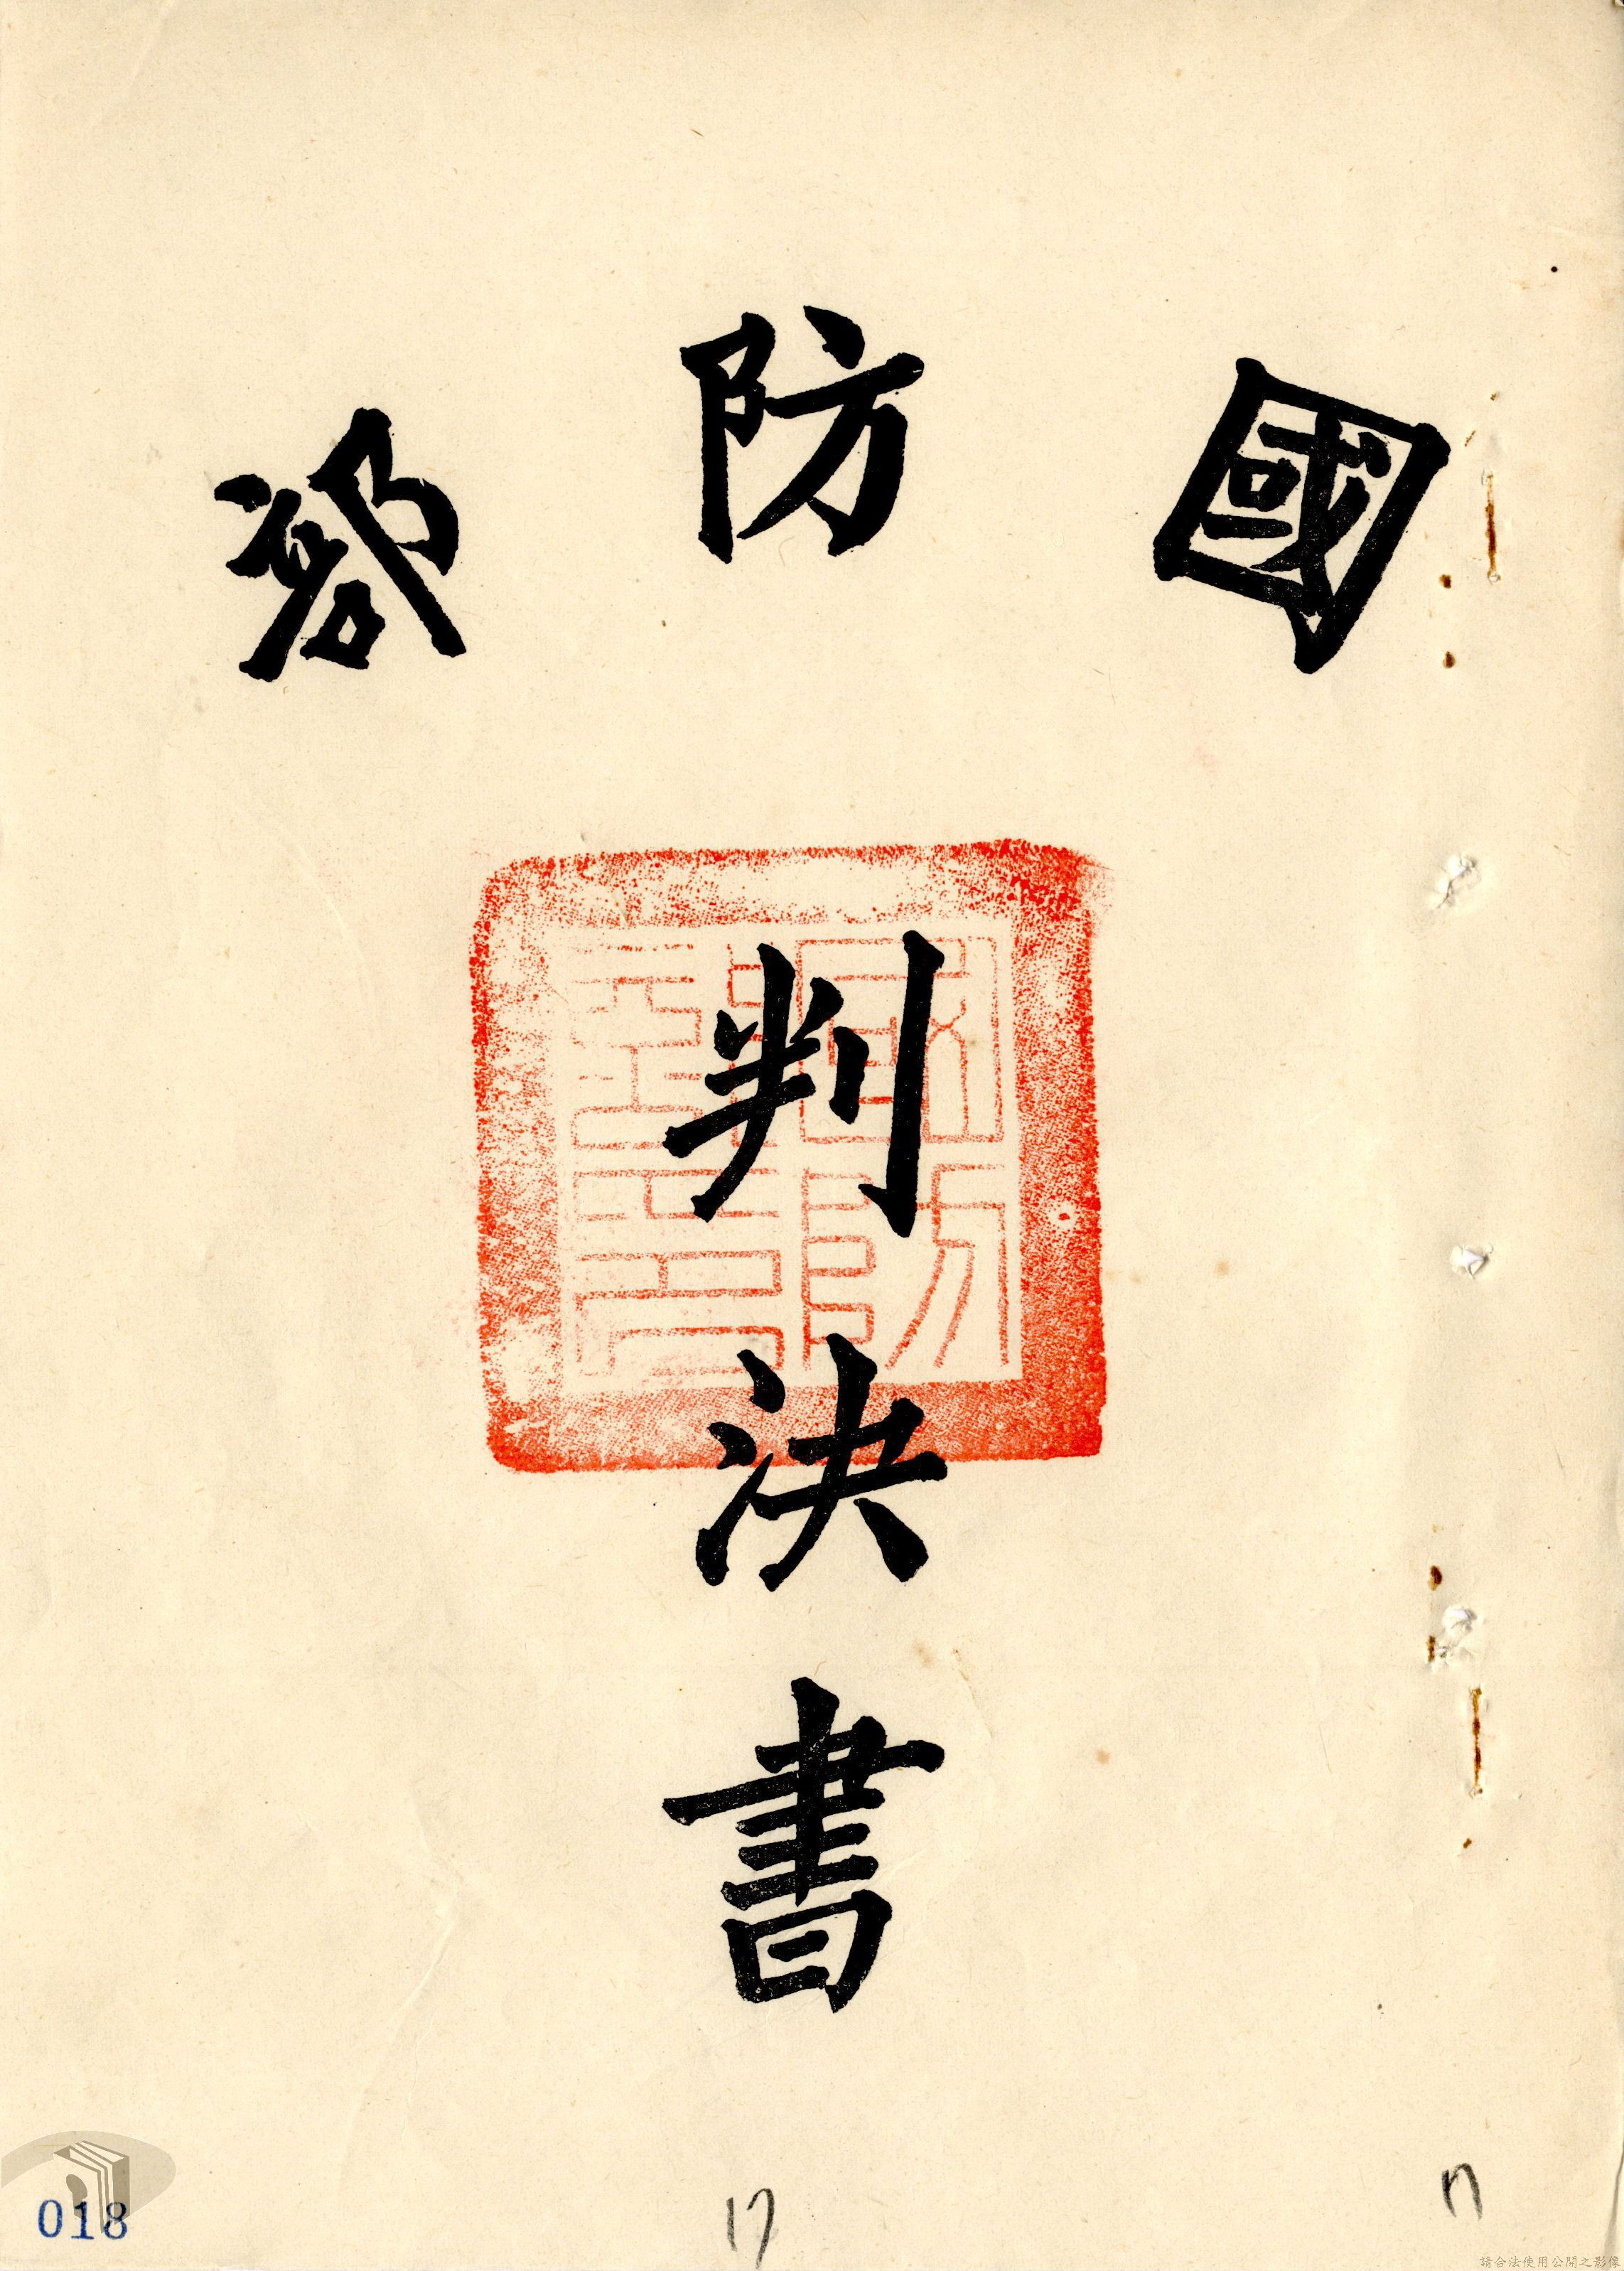 國防部
判決書
018
17
17
請合法使用公開之影像